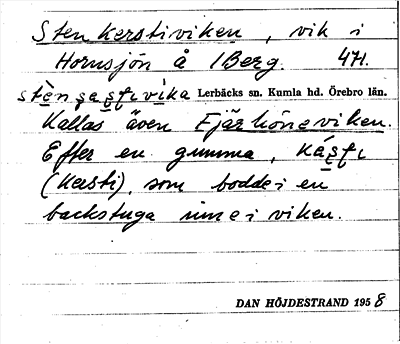 Sten kerstiviken, vik i
Hornsjön å 1 Berg. 47H.
Lerbäcks sn. Kumla hd. Örebro län.
Kallas även Fjärhöneviken.
Efter en gumma,
(Kersti), som bodde i en
backstuga inne i viken.
DAN HÖJDESTRAND 1958